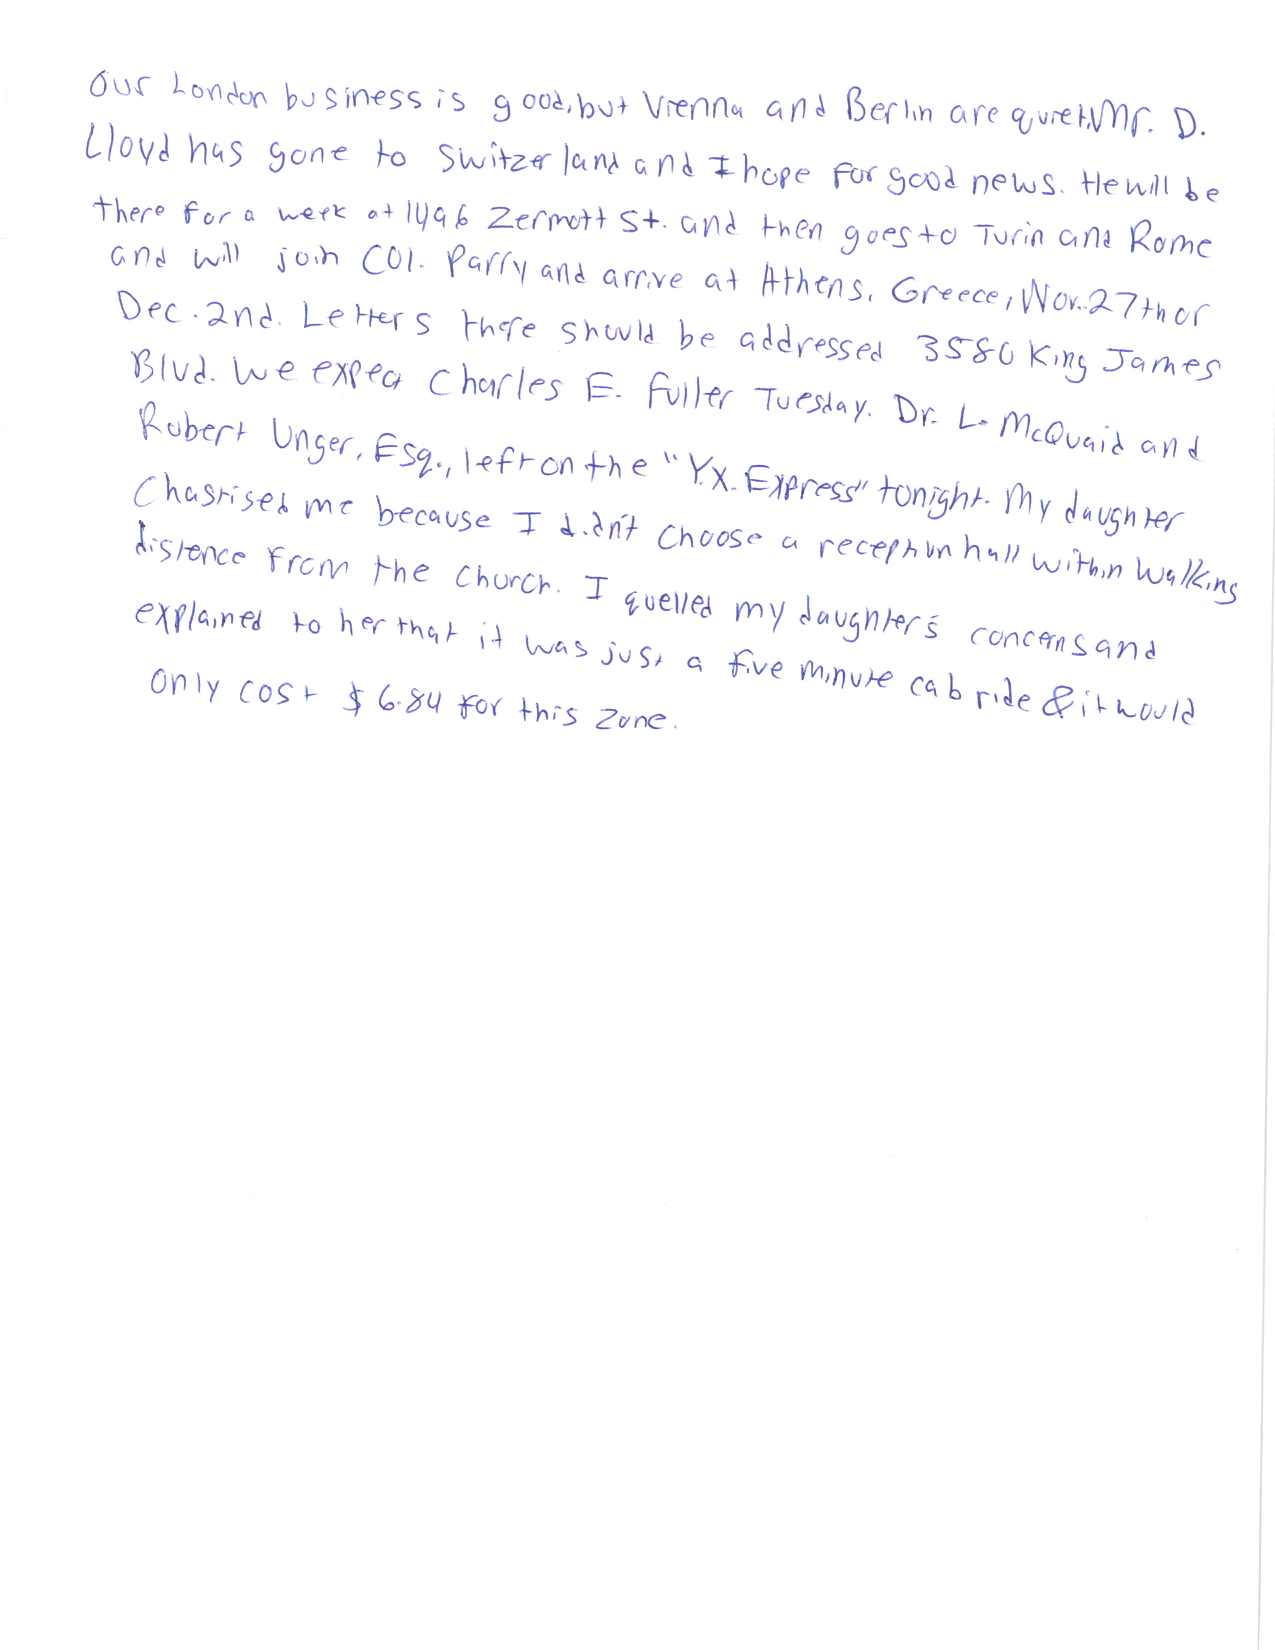 Our London business is good, but Vienna and Berlin are quiet. Mr. D.
Lloyd has gone to Switzerland and I hope for good news. He will be
there for a week at 1496 Zermott St. and then goes to Turin and Rome
and will join Col. Parry and arrive at Athens, Greece, Nov. 27th or
Dec. 2nd. Letters there should be addressed 3580 King James
Blvd. We expect Charles E. Fuller Tuesday. Dr. L. McQuaid and
Robert Unger, Esq., left on the "Y.X. Express" tonight. My daughter
Chastised me because I didn't choose a reception hall within walking
distence from the church. I quelled my daughter's concerns and
explained to her that it was just a five minute cab ride & it would
only cost $6.84 for this zone.